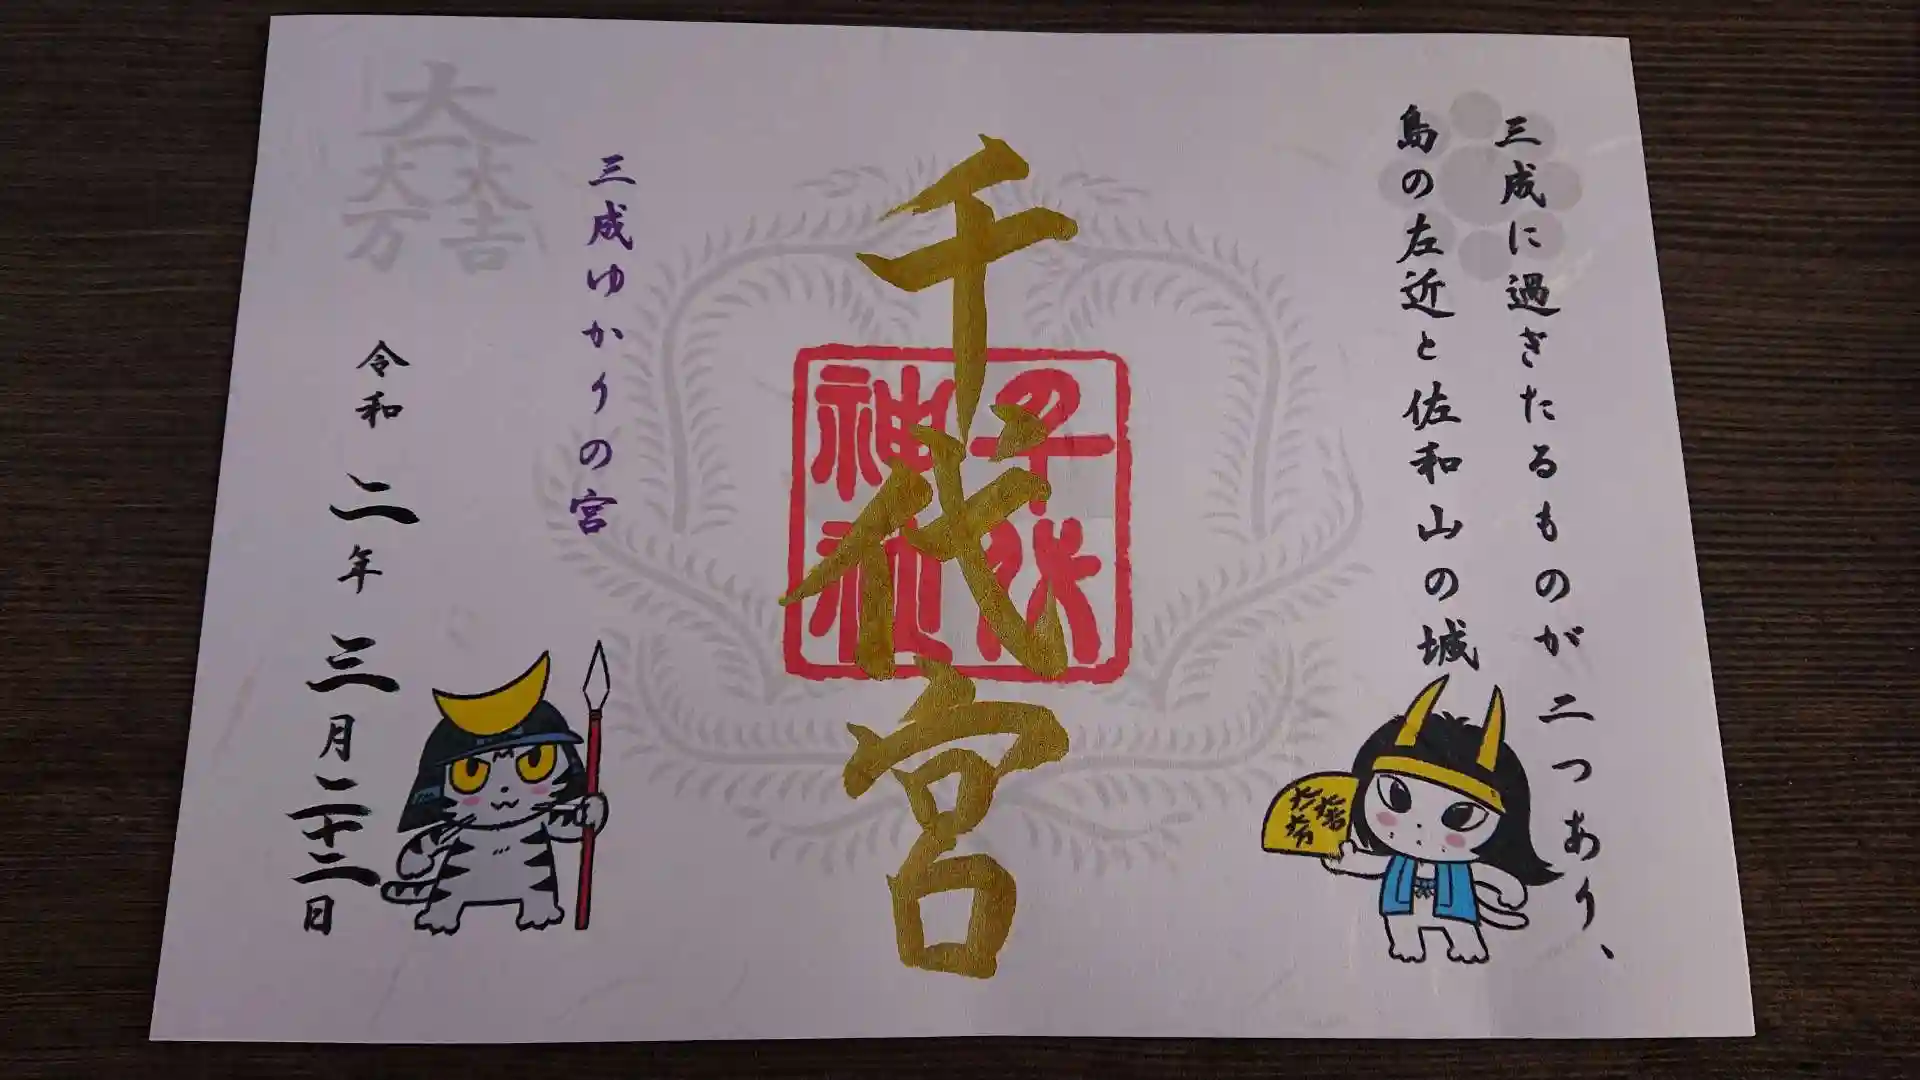 三成に過ぎたるものが二つあり、
島の左近と佐和山の城
千代宮
千代
神社
三成ゆかりの宮
大一大万大吉
令和二年三月二十二日
大一大万大吉